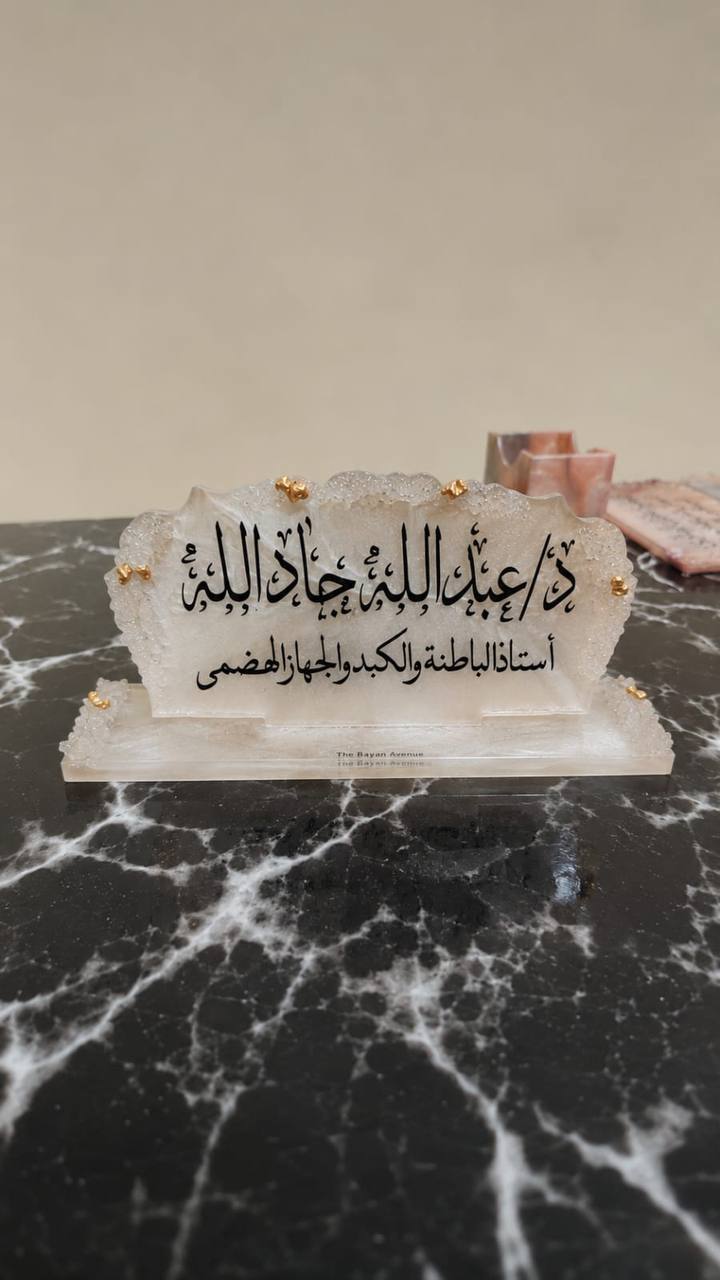 د/عبدالله جادالله
أستاذ الباطنة والكبد والجهاز الهضمى
The Bayan Avenue